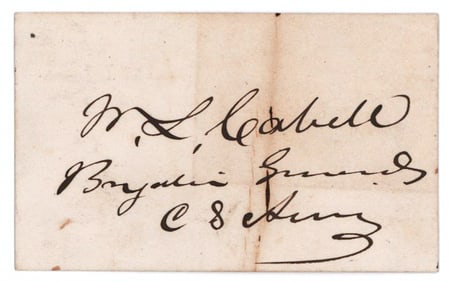 W. L. Cabell
Brigadier General
C S Army